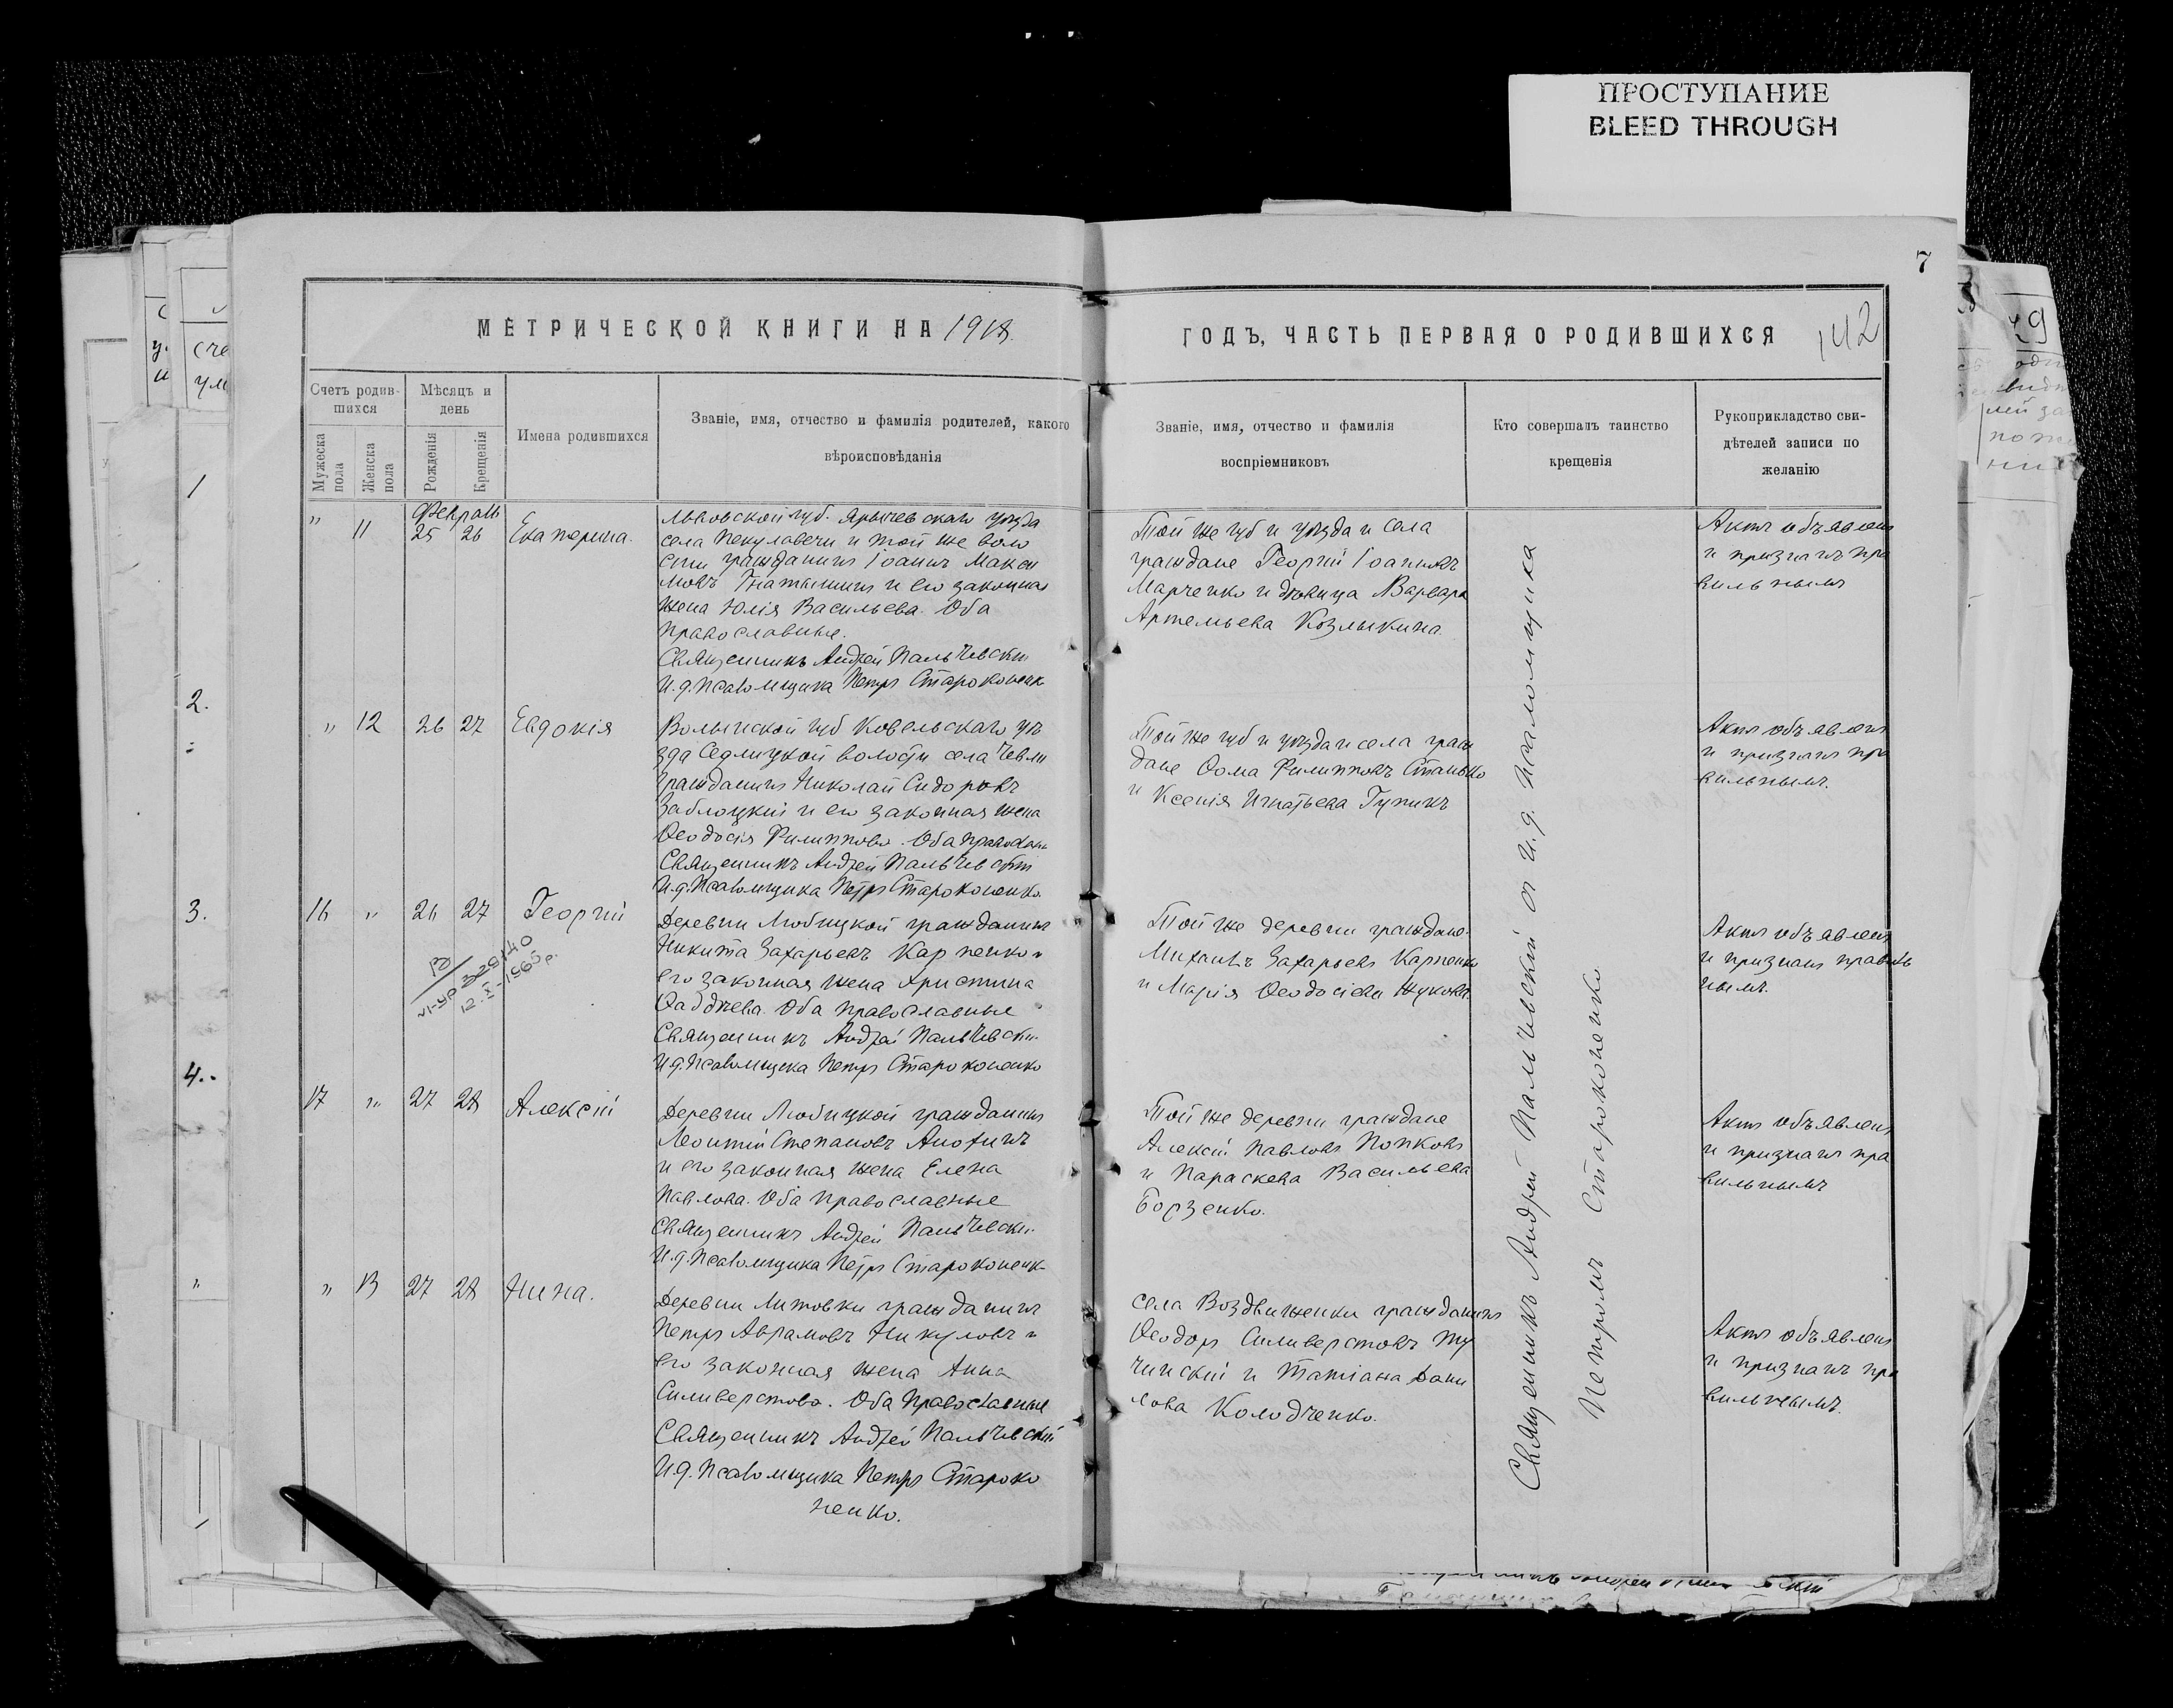 ПРОСТУПАНИЕ
BLEED THROUGH
7
МЕТРИЧЕСКОЙ КНИГИ НА 1918.
ГОДЪ, ЧАСТЬ ПЕРВАЯ О РОДИВШИХСЯ
142
Счетъ родив-
шихся
Мужеска пола
Женска пола
Мѣсяцъ и
день
Рожденія
Крещенія
Имена родившихся
Званіе, имя, отчество и фамилія родителей, какого
вѣроисповѣданія
Званіе, имя, отчество и фамилія
воспріемниковъ
Кто совершалъ таинство
крещенія
Рукоприкладство сви-
дѣтелей записи по
желанію
Февраль
" 11 25 26 Екатерина.
Львовской губ. уѣзда
села и той же воло
сти гражданинъ Іоаннъ Макси
мовъ и его законная
жена Юлія Васильева. Оба
православные.
Священникъ Андрей Пальчевскій
И.д. Псаломщика Петръ Староконенк
Той же губ и уѣзда и села
граждане Георгій Іоанновъ
Марченко и дѣвица Варвара
Артемьева Козлыкина.
Актъ объявленъ
и признанъ пра
вильнымъ
" 12 26 27 Евдокія
Волынской губ Ковельскаго уѣ
зда Седлицкой волости села
гражданинъ Николай Сидоровъ
Заблоцкий и его законная жена
Ѳеодосія Филиппова. Оба
Священникъ Андрей Пальчевскій
И.д. Псаломщика Петръ Староконенко.
Той же губ и уѣзда и села граж
дане Ѳома Филипповъ Станько
и Ксенія Игнатьева Гупикъ
Актъ объявленъ
и признанъ пра
вильнымъ.
16 " 26 27 Георгій
12.X-1965г.
Деревни Любицкой гражданинъ
Никита Захарьевъ Карпенко и
его законная жена Христина
Ѳаддѣева. Оба православные
Священникъ Андрей Пальчевскій
И.д. Псаломщика Петръ Староконенко
Той же деревни граждане
Михаилъ Захарьевъ Карпенко
и Марія Ѳеодосіева Жукова.
Актъ объявленъ
и признанъ правиль
нымъ.
17 " 27 28 Алексій
Деревни Любицкой гражданинъ
Леонтій Степановъ Анохинъ
и его законная жена Елена
Павлова. Оба православные
Священникъ Андрей Пальчевскій
И.д. Псаломщика Петръ Староконенк
Той же деревни граждане
Алексій Павловъ Попковъ
и Параскева Васильева
Борзенко.
Актъ объявленъ
и признанъ пра
вильнымъ
" 13 27 28 Нина.
Деревни Литовки гражданинъ
Петръ Аврамовъ Никуловъ и
его законная жена Анна
Силиверстова. Оба православные
Священникъ Андрей Пальчевскій
И.д. Псаломщика Петръ Староко
ненко.
села Воздвиженки гражданинъ
Ѳеодоръ Силиверстовъ Ту
чинскій и Татіана Дани
лова Колодченко.
Актъ объявленъ
и признанъ пра
вильнымъ.
Священникъ Андрей Пальчевскій съ и.д. псаломщика
Петромъ Староконенко
1
2.
3.
4.